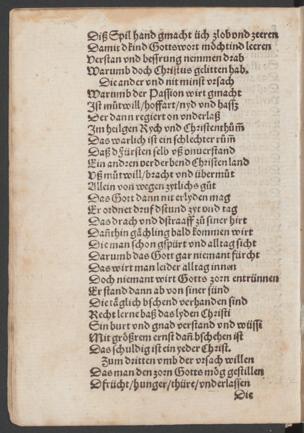 Diß Spil hand gmacht üch zlob vnd zeeren
Damit dkind Gottswort möchtind leeren
Verstan vnd bessrung nemmen drab
Warumb doch Christus gelitten hab.
Die ander vnd nit minst vrsach
Warumb der Passion wirt gmacht
Ist mütwill/hoffart/nyd vnd hassz
Der dann regiert on vnderlaß
Im heilgen Rych vnd Christenthum̃
Das warlich ist ein schlechter rům̃
Daß d Fürsten selb vß vnuerstand
Ein andren verderbend Christen land
Vß můtwill/bracht vnd übermůt
Allein von wegen zytlichs gůt
Das Gott dann nit erlyden mag
Er ordnet druf dstund zyt vnd tag
Das drach vnd dstraaff zů siner hirt
Dañ thin gächling bald kommen wirt
Die man schon gspürt vnd alltag sicht
Darumb das Gott gar niemant fürcht
Das wirt man leider alltag innen
Doch niemant wirt Gotts zorn entrünnen
Er stand dann ab von siner sünd
Die täglich bschend verhanden sind
Recht lerne baß das lyden Christi
Sin hurt vnd gnad verstand vnd wüssi
Mit größrem ernst dañ bschehen ist
Das schuldig ist ein yeder Christ.
Zum dritten vmb der vrsach willen
Das man den zorn Gotts mög gestillen
D frücht/hunger/thüre/vnderlassen
Die